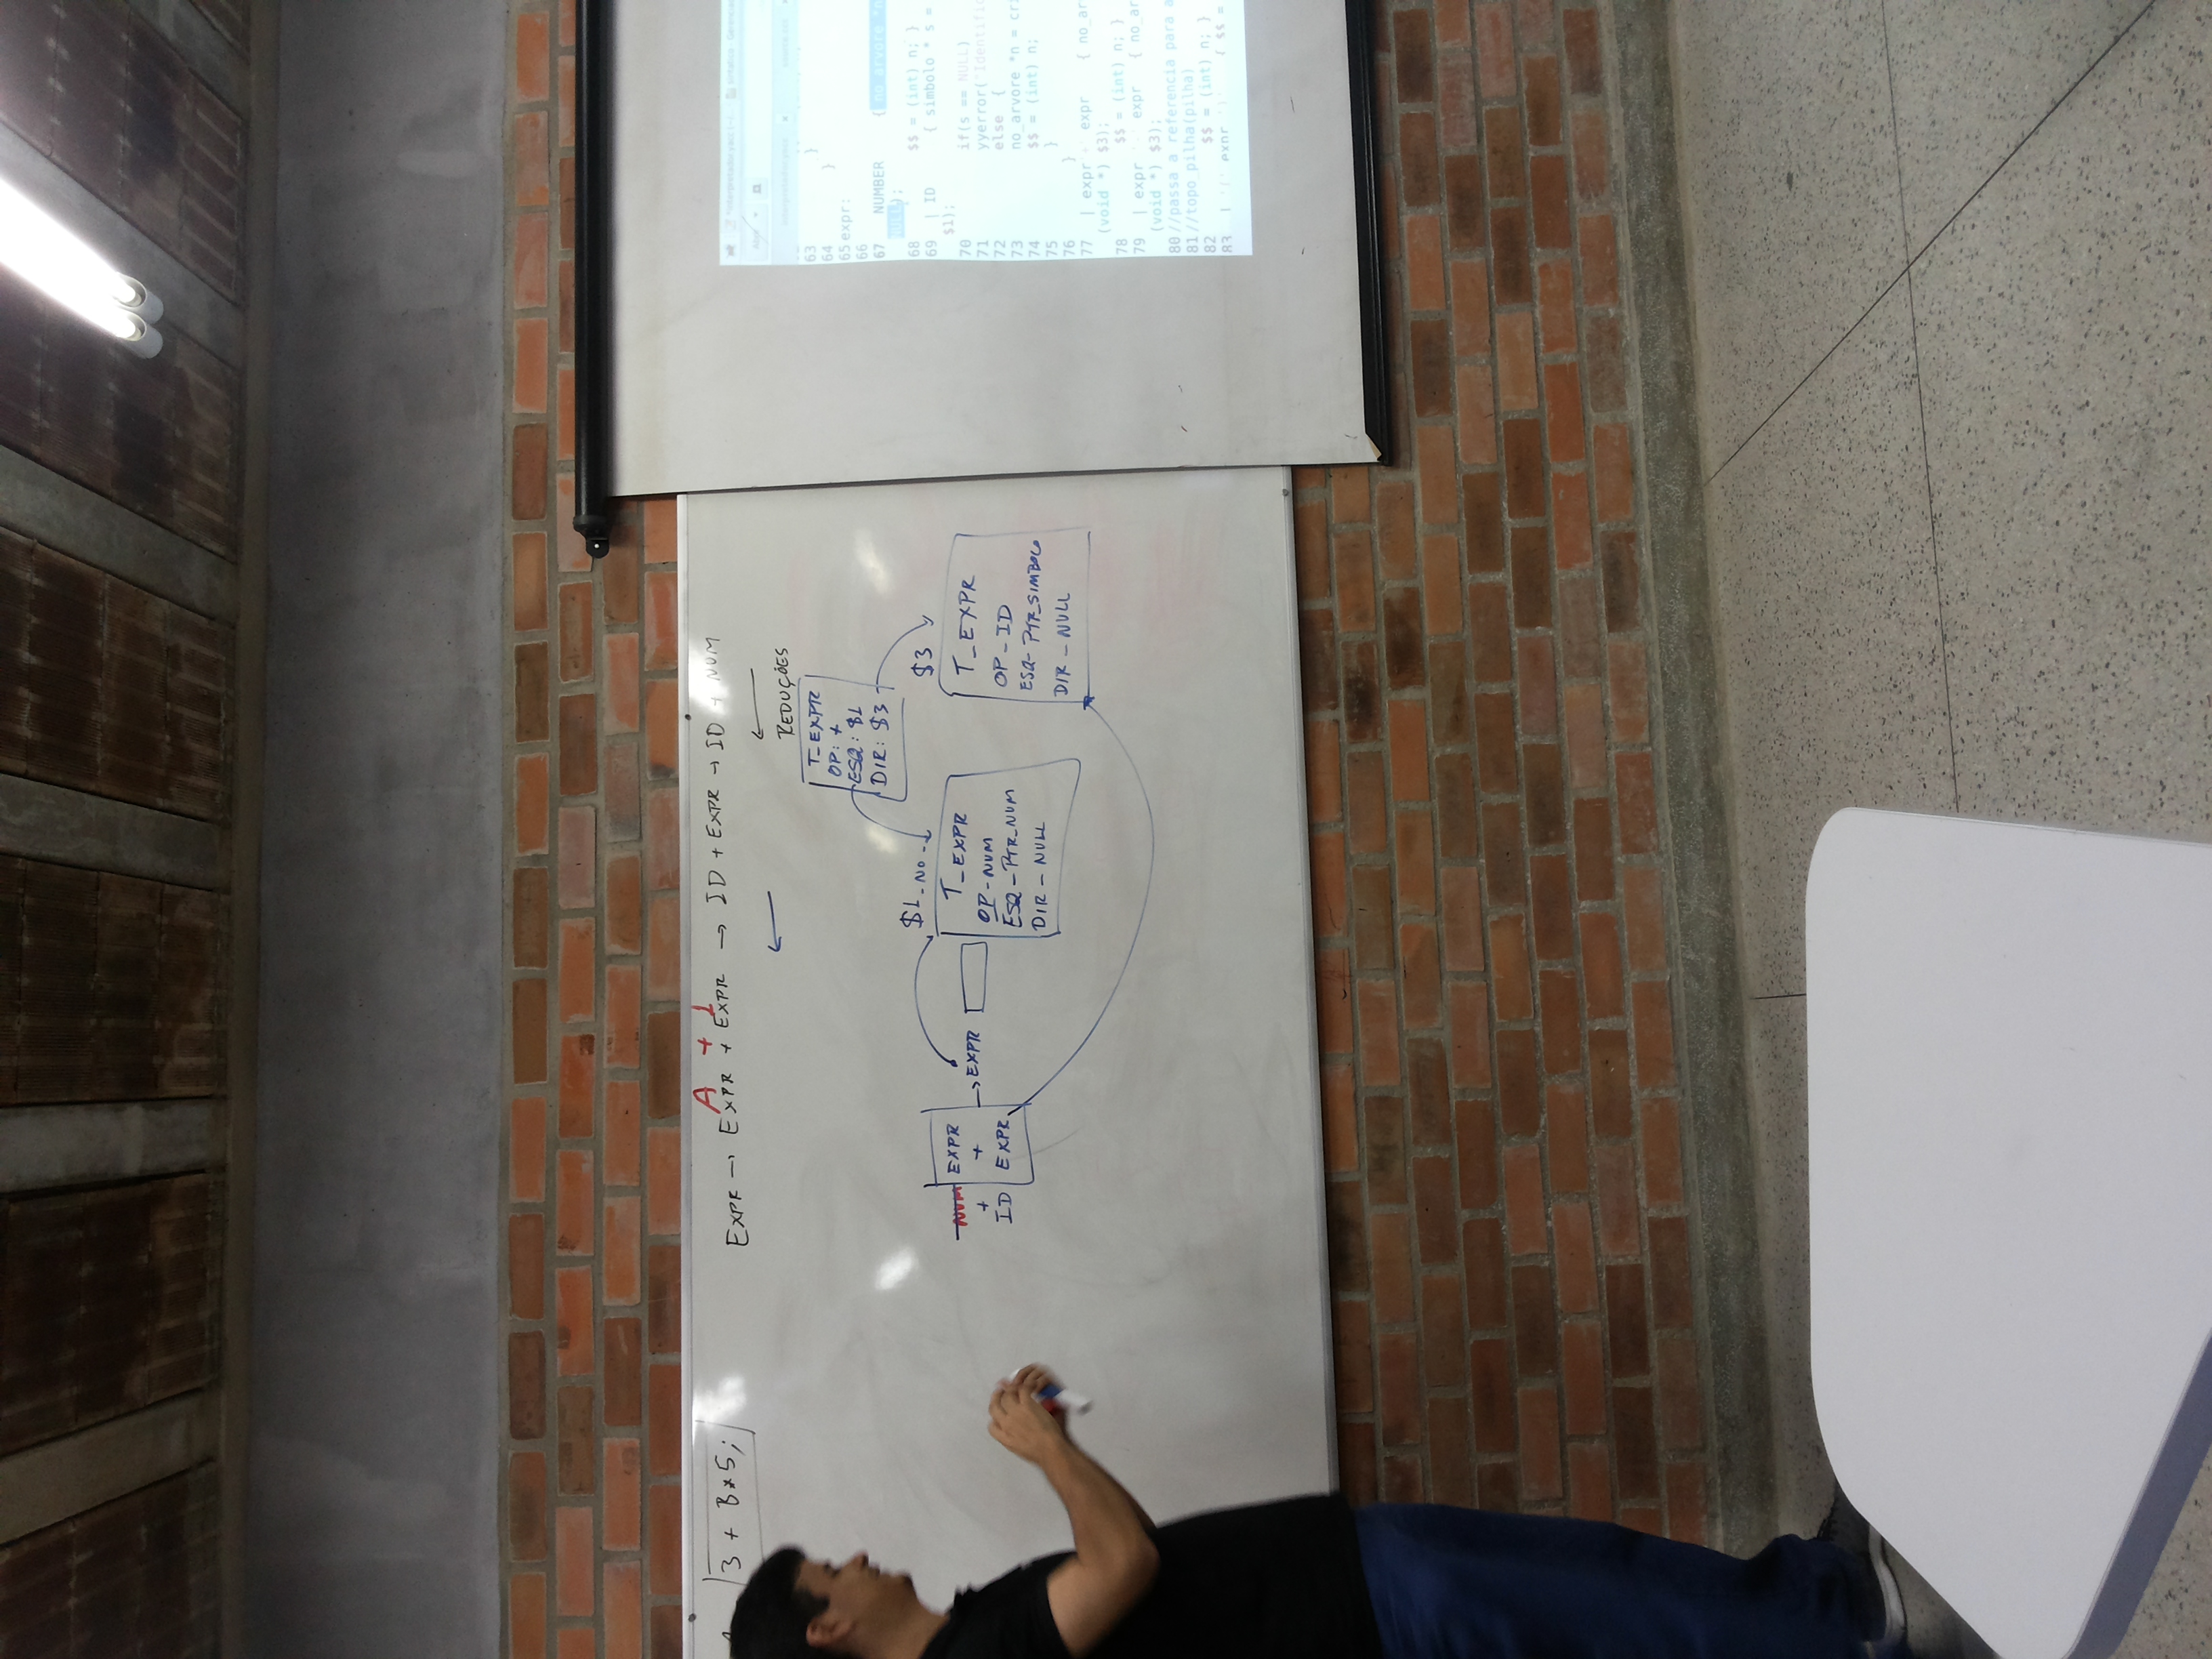 3 + B*5;
A + 1
EXPR → EXPR + EXPR → ID + EXPR → ID + NUM
←
←
REDUÇÕES
T_EXPR
OP: +
ESQ: $1
DIR: $3
$1_NO
$3
NUM
+
ID
EXPR
+
EXPR
→ EXPR
T_EXPR
OP-NUM
ESQ-PTR_NUM
DIR-NULL
T_EXPR
OP-ID
ESQ-PTR_SIMBOLO
DIR-NULL
63 }
64 }
65 expr:
66
67 NUMBER { no_arvore *n
NULL);
68 $$ = (int) n; }
69 | ID { simbolo * s =
$1);
70 if(s == NULL)
71 yyerror("Identific
72 else {
73 no_arvore *n = cri
74 $$ = (int) n;
75 }
76 }
77 | expr expr { no_ar
(void *) $3);
78 $$ = (int) n; }
79 | expr expr { no_ar
(void *) $3);
80 //passa a referencia para a
81 //topo_pilha(pilha)
82 $$ = (int) n; }
83 | '(' expr ')' { $$ =